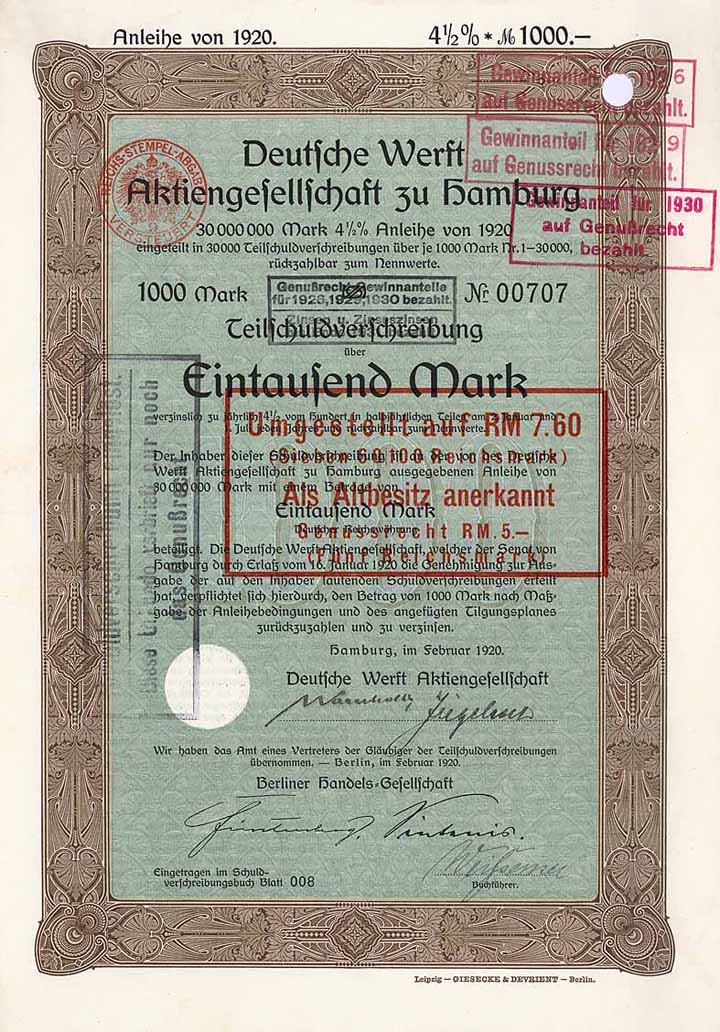 Anleihe von 1920.
4½% * ℳ 1000.—
Gewinnanteil
auf Genussrecht bezahlt.
Gewinnanteil für 1929
auf Genussrecht bezahlt.
Gewinnanteil für 1930
auf Genußrecht
bezahlt
REICHS-STEMPEL-ABGABE
VERSTEUERT
Deutſche Werft
Aktiengeſellſchaft zu Hamburg
30 000 000 Mark 4½% Anleihe von 1920
eingeteilt in 30000 Teilſchuldverſchreibungen über je 1000 Mark Nr. 1—30000,
rückzahlbar zum Nennwerte.
1000 Mark
Genußrecht Gewinnanteile
für 1928, 1929, 1930 bezahlt.
Zinsen u. Zinseszinsen
Nr. 00707
Teilſchuldverſchreibung
über
Eintauſend Mark
verzinslich zu jährlich 4½ vom Hundert in halbjährlichen Teilen am 2. Januar und
1. Juli jeden Jahres und rückzahlbar zum Nennwerte.
Umgestellt auf RM 7.60
(Sieben 60/100 Reichsmark)
Als Altbesitz anerkannt
Genussrecht RM. 5.—
(Fünf Reichsmark)
Der Inhaber dieser Schuldverſchreibung iſt an der von der Deutſchen
Werft Aktiengeſellſchaft zu Hamburg ausgegebenen Anleihe von
30 000 000 Mark mit einem Betrage von
Eintauſend Mark
Deutſcher Reichswährung
beteiligt. Die Deutſche Werft Aktiengeſellſchaft, welcher der Senat von
Hamburg durch Erlaß vom 16. Januar 1920 die Genehmigung zur Aus-
gabe der auf den Inhaber lautenden Schuldverſchreibungen erteilt
hat, verpflichtet ſich hierdurch, den Betrag von 1000 Mark nach Maß-
gabe der Anleihebedingungen und des angefügten Tilgungsplanes
zurückzuzahlen und zu verzinſen.
Diese Urkunde verbrieft nur noch
das Genußrecht
Hamburg, im Februar 1920.
Deutſche Werft Aktiengeſellſchaft
Wir haben das Amt eines Vertreters der Gläubiger der Teilſchuldverſchreibungen
übernommen. — Berlin, im Februar 1920.
Berliner Handels-Geſellſchaft
Fürstenberg.
Eingetragen im Schuld-
verſchreibungsbuch Blatt 008
Buchführer.
Leipzig — GIESECKE & DEVRIENT — Berlin.